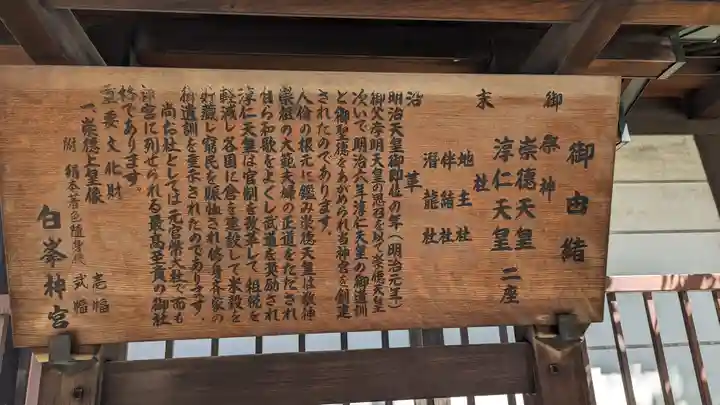 御由緒
御祭神
崇徳天皇
淳仁天皇
二座
末社
地主社
伴緒社
潜龍社
沿革
明治天皇御即位の年（明治元年）
御父孝明天皇の思召を以て崇徳天皇
次いで明治六年淳仁天皇の御遺訓
と御聖徳をあがめられ当神宮を創建
されたのであります。
人倫の根元に鑑み崇徳天皇は敬神
崇祖の大範夫婦の正道をたださ れ
自ら和歌をよくし武道を奨励され
淳仁天皇は官制を改革して租税を
軽減し各国に倉を建設して米穀を
貯蔵し窮民を賑恤され修身斉家の
御遺訓を垂示されたのであります。
尚当社としては元官幣大社で而も
神宮に列せられる最高至貴の御社
格であります。
重要文化財
一、崇徳上皇像 壱幅
附 絹本着色随身像 弐幅
白峯神宮